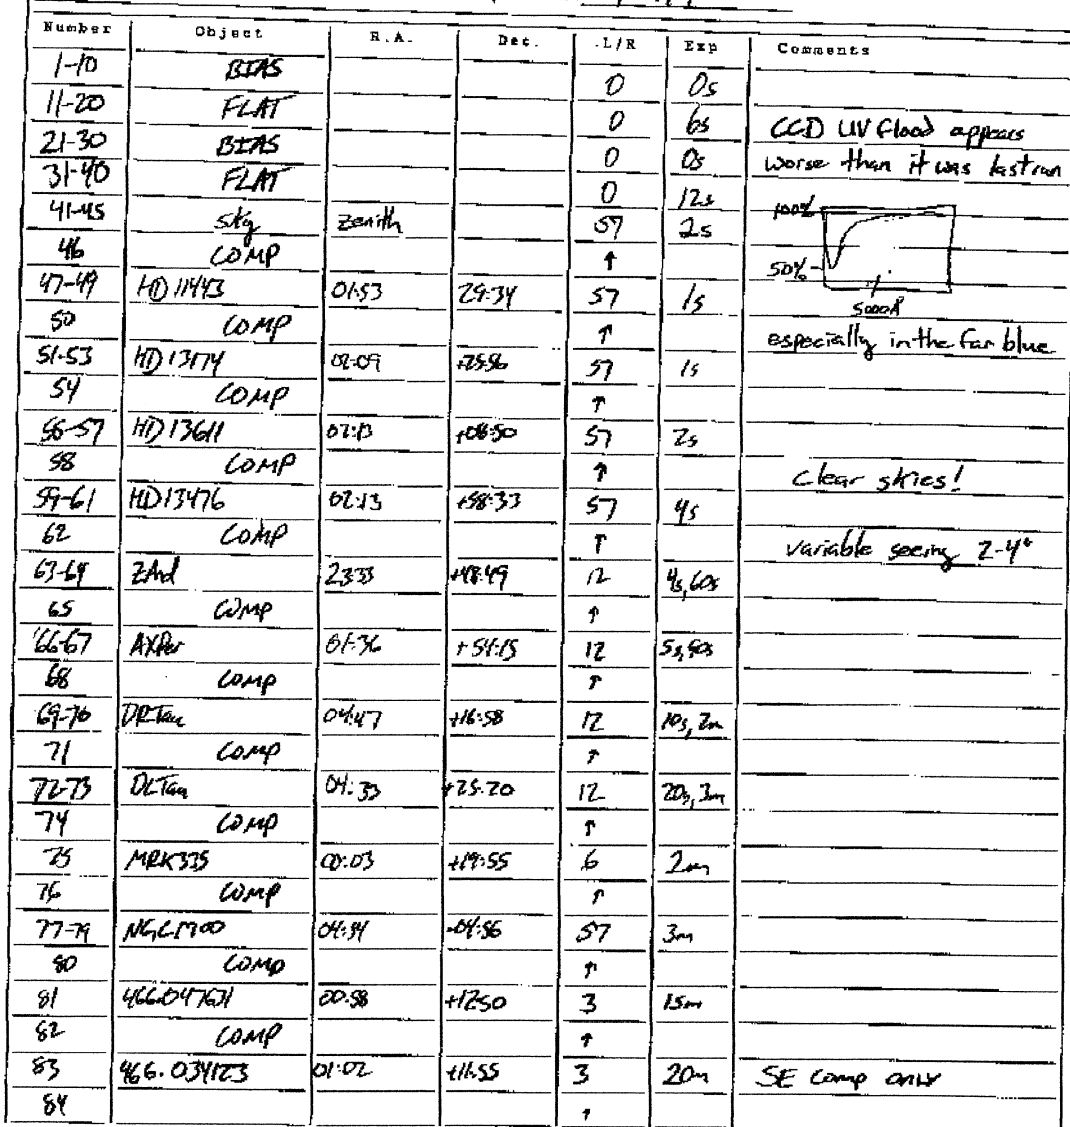 Number Object R.A. Dec. L/R Exp Comments
1-10 BIAS 0 0s
11-20 FLAT 0 6s CCD UV flood appears
21-30 BIAS 0 0s worse than it was last run
31-40 FLAT 0 12s
41-45 sky zenith 57 2s 100%
46 COMP ↑ 50%
47-49 HD 11443 01:53 29:34 57 1s 5000Å
50 COMP ↑ especially in the far blue
51-53 HD 13174 02:09 +25:56 57 1s
54 COMP ↑
55-57 HD 13611 02:13 +08:50 57 2s
58 COMP ↑ clear skies!
59-61 HD13476 02:13 +58:33 57 4s
62 COMP ↑ variable seeing 2-4"
63-64 ZAnd 23:33 +48:49 12 4s, 60s
65 COMP ↑
66-67 AXPer 01:36 +54:15 12 5s, 90s
68 COMP ↑
69-70 DRTau 04:47 +16:58 12 10s, 2m
71 COMP ↑
72-73 DLTau 04:33 +25:20 12 20s, 3m
74 COMP ↑
75 MRK335 00:03 +19:55 6 2m
76 COMP ↑
77-79 NGC1700 04:54 -04:56 57 3m
80 COMP ↑
81 466.047631 00:58 +12:50 3 15m
82 COMP ↑
83 466.034123 01:02 +11:55 3 20m SE comp only
84 ↑